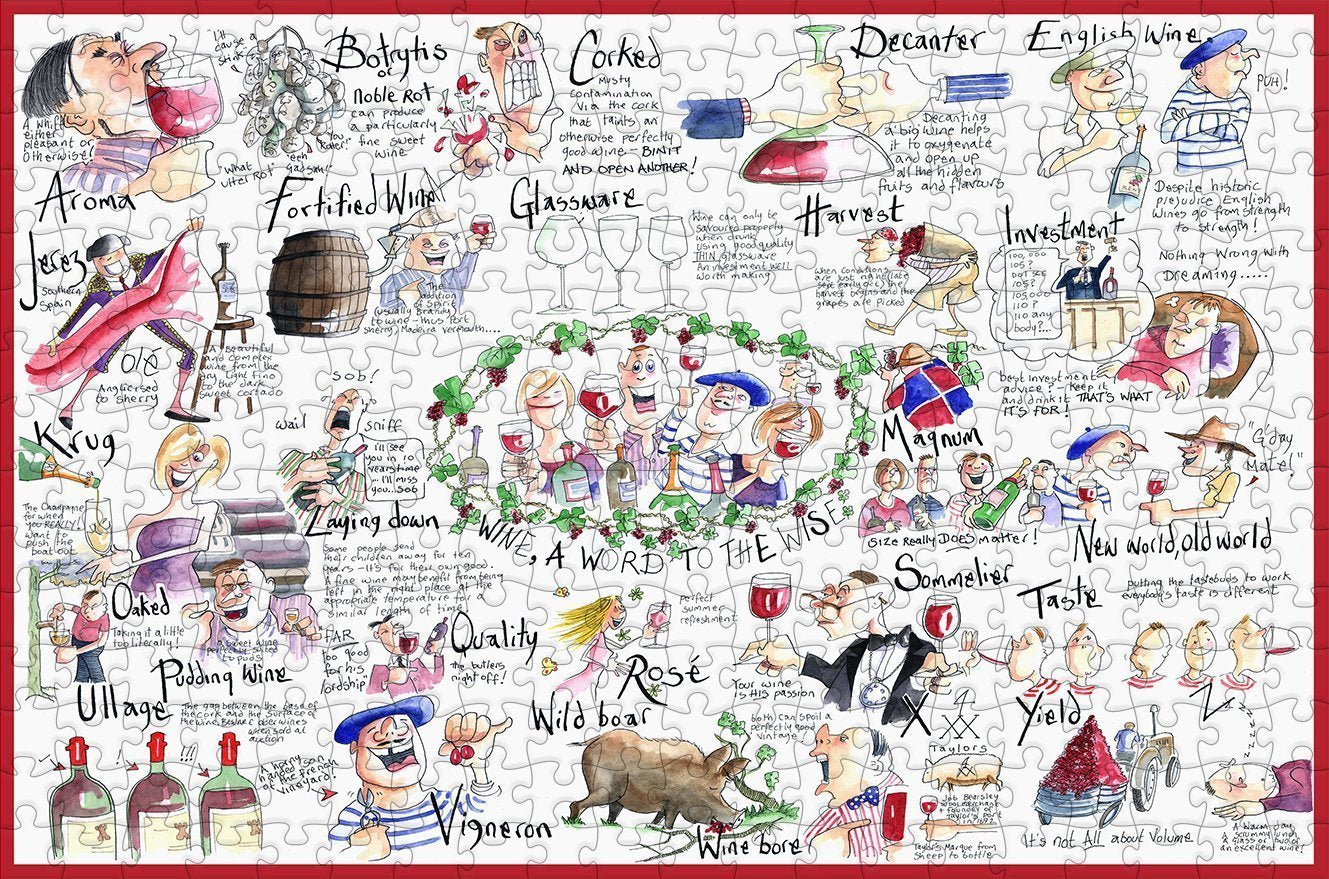 A whiff
either
pleasant or
otherwise!
Aroma
Botrytis
or
noble Rot
can produce
a particularly
fine sweet
wine
"what
utter Rot"
Corked
Musty
contamination
via the cork
that taints an
otherwise perfectly
good wine - BIN IT
AND OPEN ANOTHER!
Decanter
Decanting
a big wine helps
it to oxygenate
and open up
all the hidden
fruits and flavours
English Wine
PUH!
Despite historic
prejudice English
wines go from strength
to strength!
Fortified Wine
The
addition
of spirit
(usually Brandy)
to wine - thus Port
Sherry, Madeira Vermouth....
Glassware
Wine can only be
savoured properly
when drunk
using good quality
THIN glassware
An investment well
worth making
Harvest
when conditions
are just right (late
sept/early oct) the
harvest begins and the
grapes are picked
Investment
100,000
105?
105,000
110?
110 any
body?...
Nothing wrong with
Dreaming.....
best investment
advice? - keep it
and drink it THAT'S WHAT
IT'S FOR!
Jerez
Southern
Spain
olé
Anglicised
to sherry
A beautiful
and complex
wine from the
dry light fino
to the dark
sweet cortado
Krug
The Champagne
for when
you REALLY!
want to
push the
boat out
sob!
wail
sniff
i'll see
you in 10
years time
... i'll miss
you...sob
Laying down
Some people send
their children away for ten
years - it's for their own good.
A fine wine may benefit from being
left in the right place at the
appropriate temperature for a
similar length of time
WINE, A WORD TO THE WISE
Magnum
Size really DOES matter!
"G'day
Mate!"
New world, old world
Oaked
Taking it a little
too literally!
Pudding Wine
a sweet wine
perfectly suited
to puds
FAR
too good
for his
lordship
Quality
the butlers
night off!
perfect
summer
refreshment
Rosé
Sommelier
Your wine
is HIS passion
Taste
putting the tastebuds to work
everybody's taste is different
Ullage
The gap between the base of
the cork and the surface of
the wine. Beware older wines
when sold at
auction
!
!!!
A horny
handed son
of the French
vineyard!
Vigneron
Wild boar
both can spoil a
perfectly good
vintage
Wine bore
X
Taylors
Job Bearsley
wool merchant
+ founder of
Taylor's port
in 1692
Taylor's Marque from
sheep to bottle
Yield
It's not All about Volume
Zzzzzz
A warm day
scrummy lunch
a glass or two of
an excellent wine!